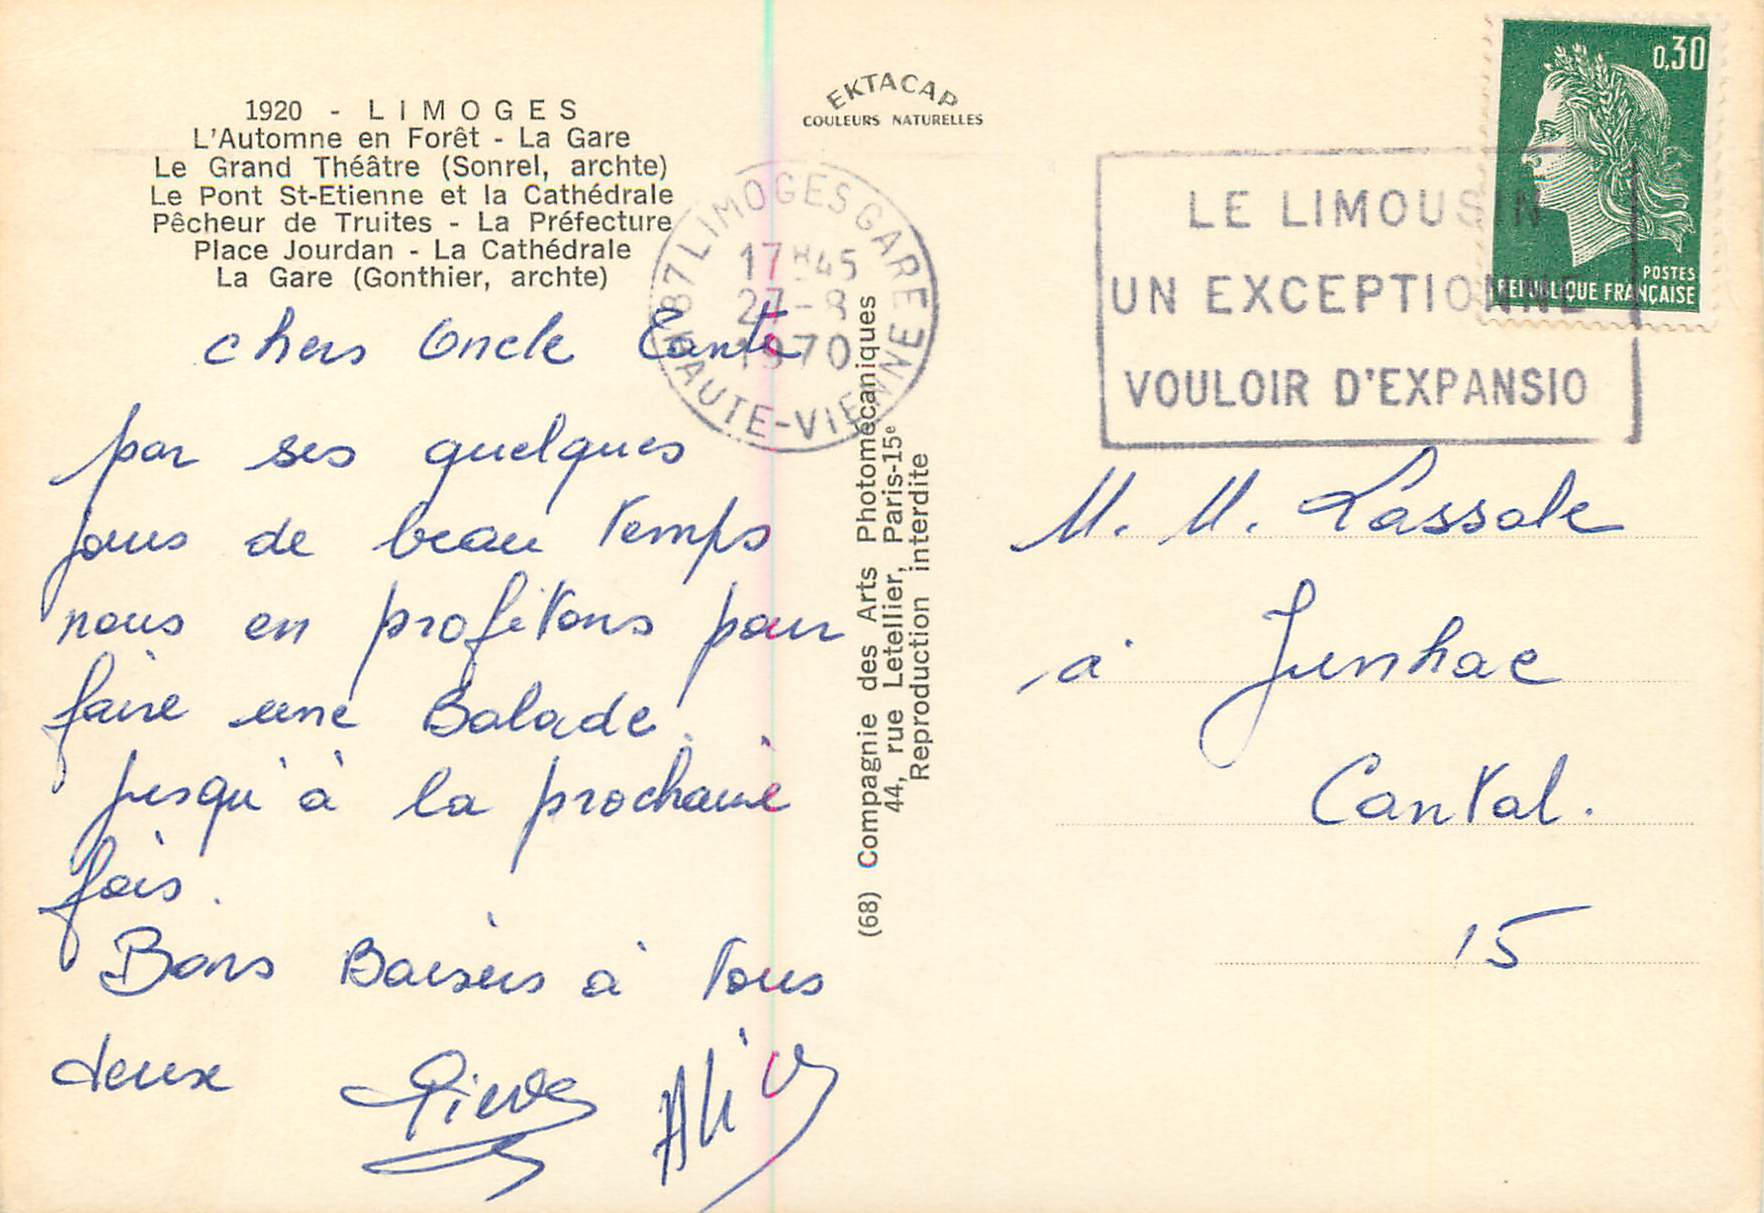 1920 - LIMOGES
L'Automne en Forêt - La Gare
Le Grand Théâtre (Sonrel, archte)
Le Pont St-Etienne et la Cathédrale
Pêcheur de Truites - La Préfecture
Place Jourdan - La Cathédrale
La Gare (Gonthier, archte)
chers Oncle Tante
par ses quelques
jours de beau temps
nous en profitons pour
faire une Balade.
jusqu'à la prochaine
fois.
Bons Baisers à tous
deux Pierre Alice
EKTACAP
COULEURS NATURELLES
87 LIMOGES GARE
17H45
27-8
1970
HAUTE-VIENNE
(68) Compagnie des Arts Photomécaniques
44, rue Letellier, Paris-15e
Reproduction interdite
0,30
POSTES
REPUBLIQUE FRANÇAISE
LE LIMOUSIN
UN EXCEPTIONNE
VOULOIR D'EXPANSIO
M. M. Lassale
à Junhac
Cantal.
15